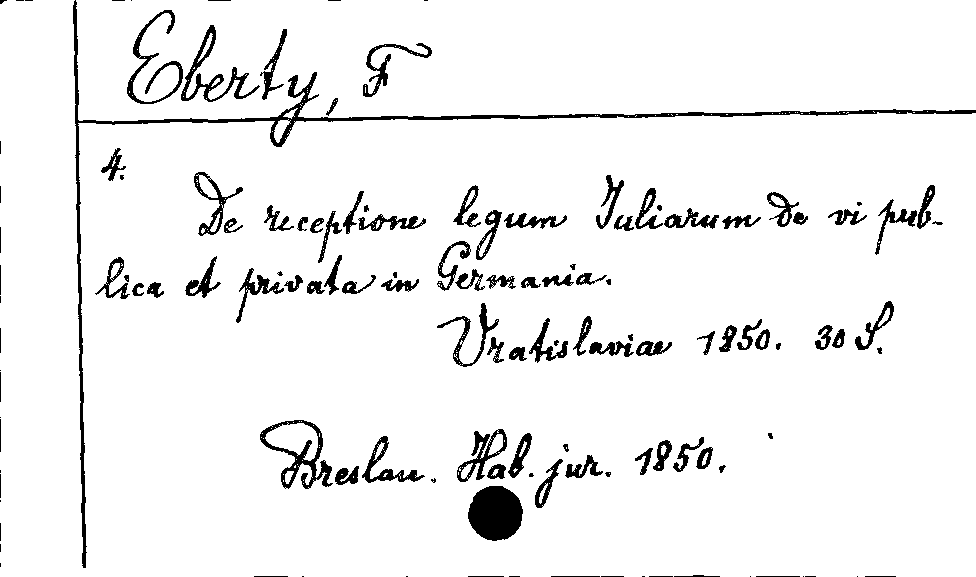 Eberty, F
4.
De receptione legum Iuliarum de vi pub-
lica et privata in Germania.
Vratislaviae 1850. 30 S.
Breslau. Hab. jur. 1850.